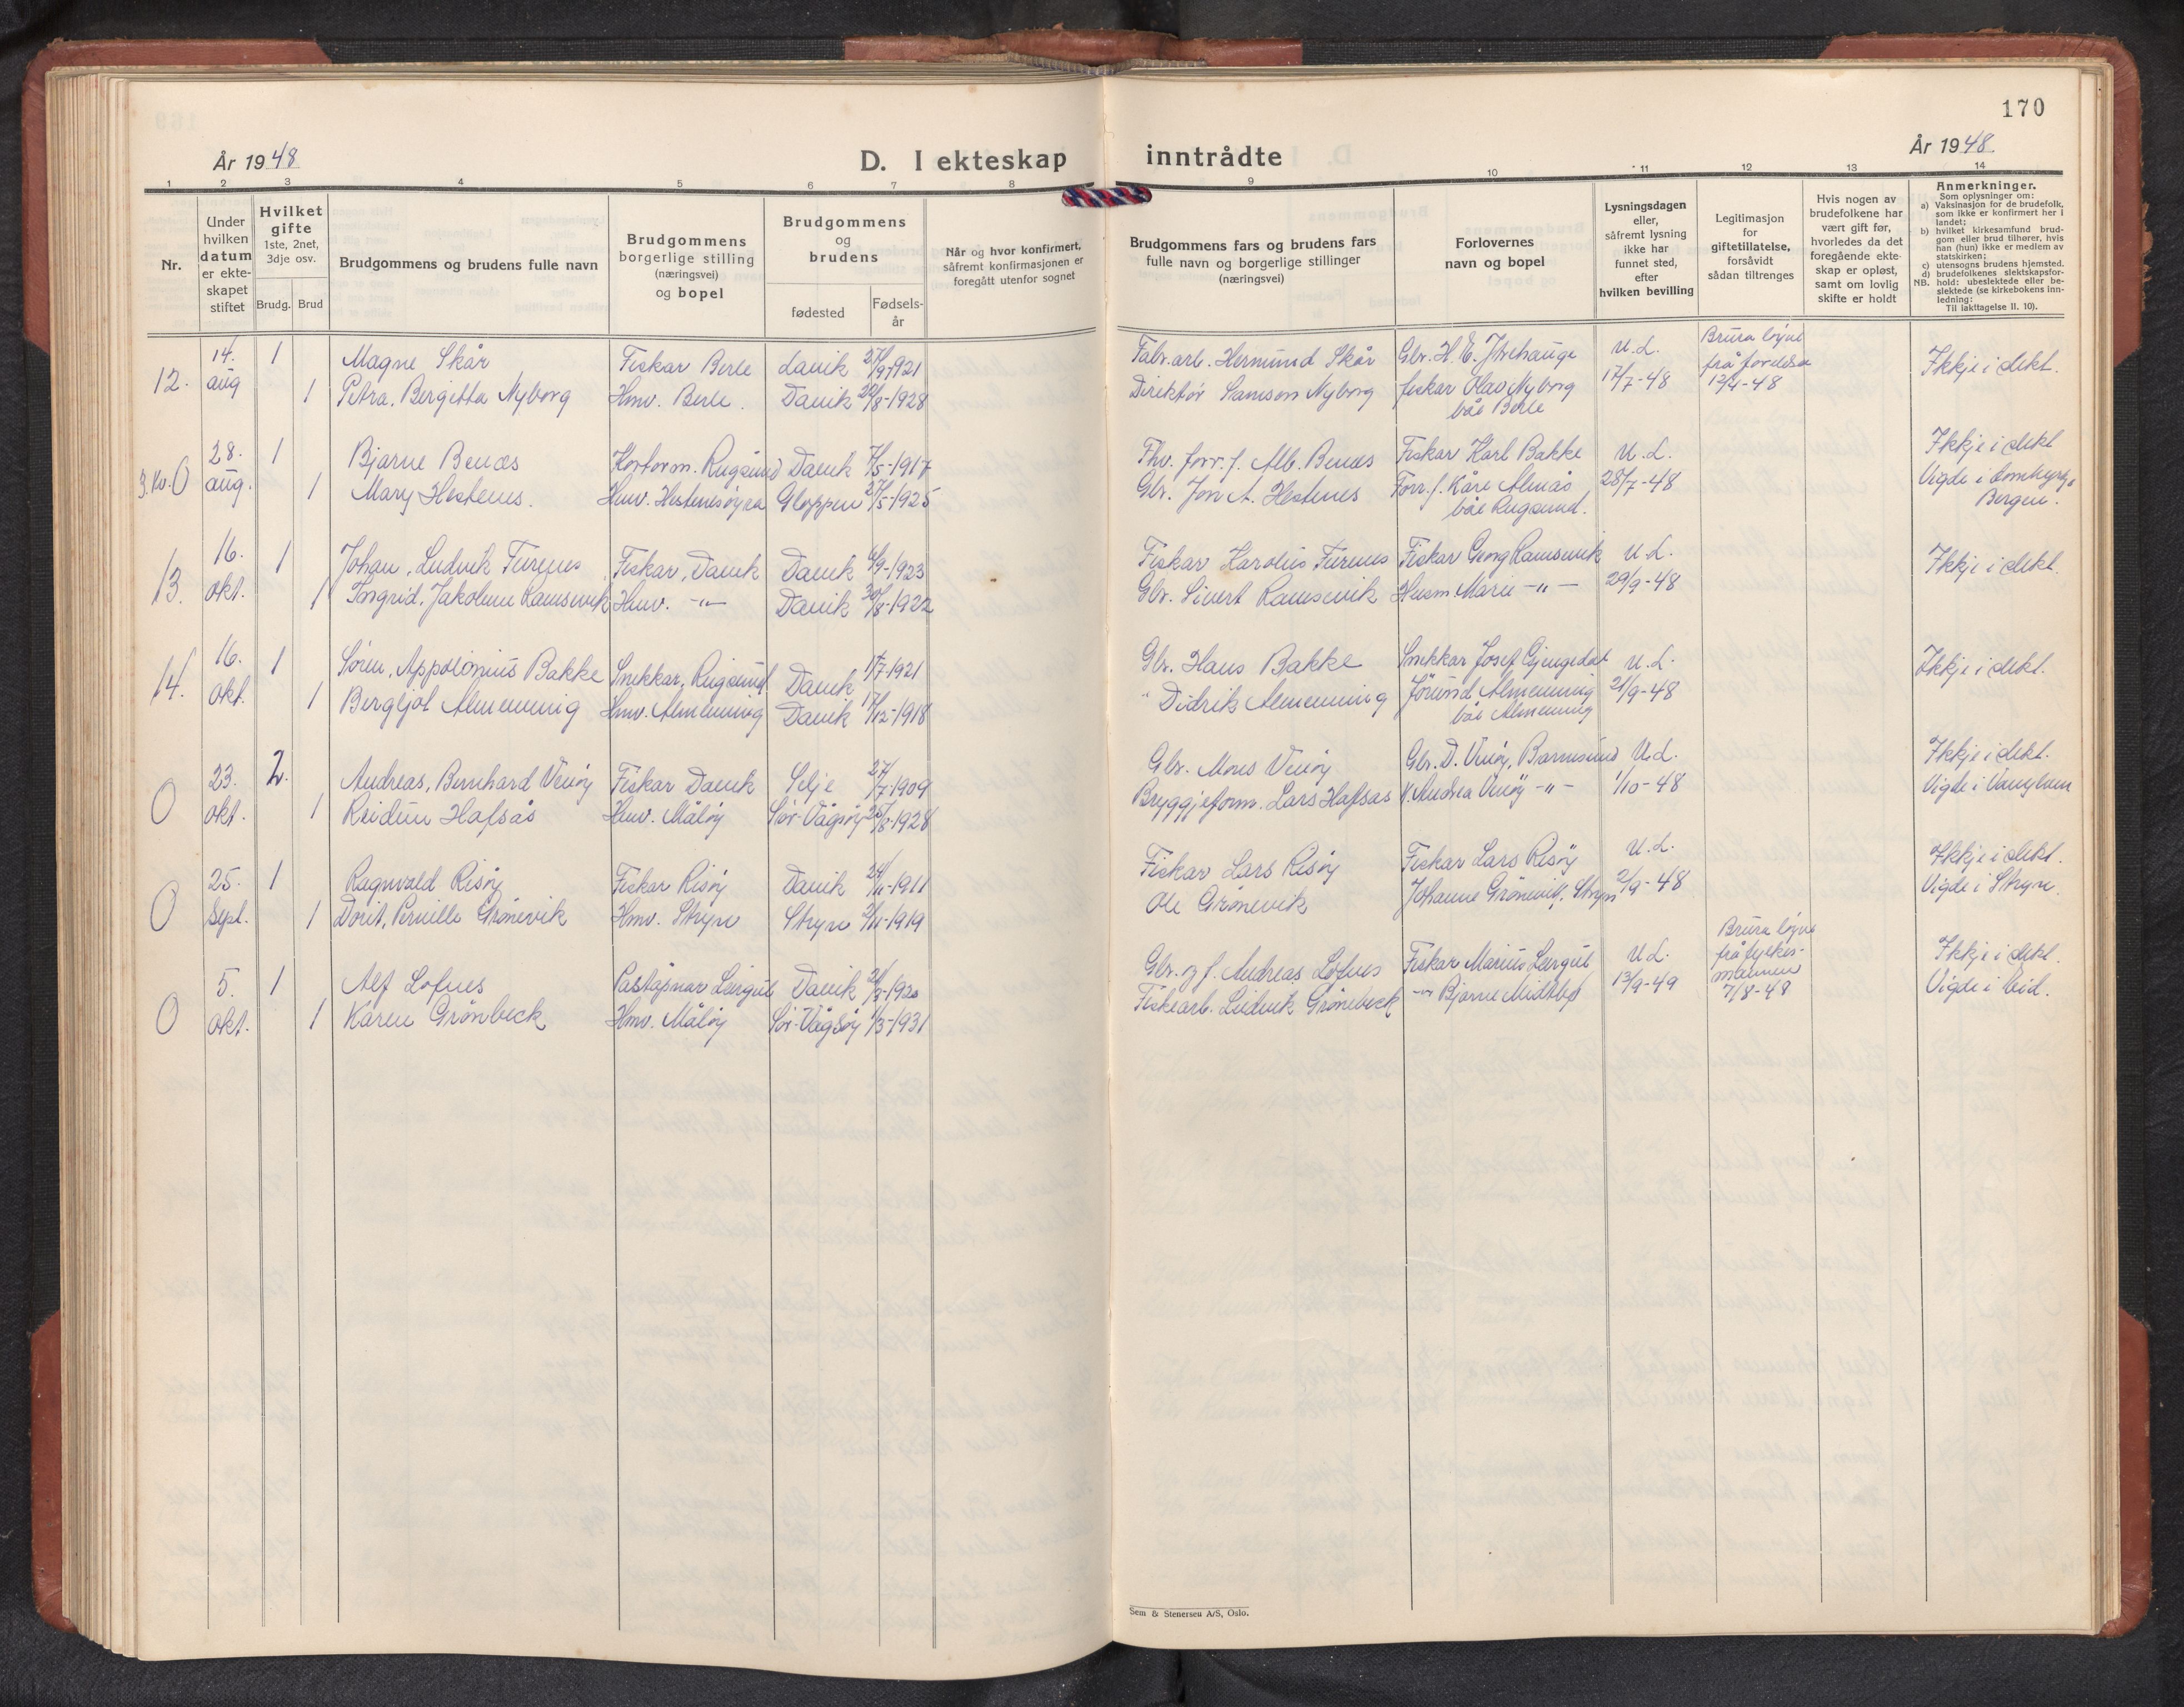 170
År 1948
D. I ekteskap inntrådte
År 1948
1 2 3 4 5 6 7 8 9 10 11 12 13 14
Nr.
Under hvilken datum er ekte-skapet stiftet
Hvilket gifte 1ste, 2net, 3dje osv.
Brudg. Brud
Brudgommens og brudens fulle navn
Brudgommens borgerlige stilling (næringsvei) og bopel
Brudgommens og brudens
fødested
Fødsels-år
Når og hvor konfirmert, såfremt konfirmasjonen er foregått utenfor sognet
Brudgommens fars og brudens fars fulle navn og borgerlige stillinger (næringsvei)
Forlovernes navn og bopel
Lysningsdagen eller, såfremt lysning ikke har funnet sted, efter hvilken bevilling
Legitimasjon for giftetillatelse, forsåvidt sådan tiltrenges
Hvis nogen av brudefolkene har vært gift før, hvorledes da det foregående ekte-skap er opløst, samt om lovlig skifte er holdt
Anmerkninger.
Som oplysninger om:
a) Vaksinasjon for de brudefolk, som ikke er konfirmert her i landet;
b) hvilket kirkesamfund brud-gom eller brud tilhører, hvis han (hun) ikke er medlem av statskirken;
c) utensogns brudens hjemsted.
d) brudefolkenes slektskapsfor-hold: ubeslektede eller be-slektede (se kirkebokens inn-ledning:
NB. Til iakttagelse II. 10).
12. 14. aug 1 Magne Skår Fiskar Berle Davik 27/9-1921 Fabr.arb. Hermund Skår Glr. H. E. U.L. Brura løyve frå Ikkje i slekt.
1 Petra, Bergitta Nyborg Hmv. Berle. Davik 22/8-1928 Direktør Samson Nyborg fiskar Olav Nyborg 17/7-48 12/4-48
båe Berle
3. Kv. O 28. aug. 1 Bjarne Benes Rugsund Davik 7/5-1917 Thv. forr.f. Alb. Benes Fiskar Karl Bakke U.L. Ikkje i slekt
1 Mary Hestenes. Hmv. Hestenesøyra Gloppen 27/5-1925 Gbr. Jon A. Hestenes Forr.f. Kåre Almås 28/7-48 Vigde i Domkyrkja
båe Rugsund. Bergen.
13. 16. okt. 1 Johan, Ludvik Furenes Fiskar, Davik Davik 6/9-1923 Fiskar Karolus Furenes Fiskar Georg Ramsevik U.L. Ikkje i slekt.
1 Ingrid, Jakobine Ramsevik Hmv. -"- Davik 30/8-1922 Gbr. Sivert Ramsevik Husm. Marie -"- 29/9-48
14. 16. okt. 1 Søren, Appolonius Bakke Snekkar, Rugsund Davik 1/7-1921 Gbr. Hans Bakke Snekkar Josef Gjengedal U.L. Ikkje i slekt.
1 Bergljot Almenning Hmv. Almenning Davik 17/12-1918 " Didrik Almenning Jørund Almenning 21/9-48
båe Almenning
O 23. okt. 2. Andreas, Bernhard Vingsøy Fiskar Davik Selje 27/7-1909 Gbr. Mons Gbr. D. U.L. Ikkje i slekt.
1 Reidun Hafsås Hmv. Måløy Sør-Vågsøy 25/8-1928 Bryggjeform. Lars Hafsås Andrea -"- 1/10-48 Vigde i
O 25. Sept. 1 Ragnvald Risøy Fiskar Risøy Davik 24/11-1911 Fiskar Lars Risøy Fiskar Lars Risøy U.L. Ikkje i slekt.
1 Dorit, Pernille Grønevik Hmv. Stryn Stryn 2/11-1919 Ole Grønevik Johanne Grønevik, Stryn 2/9-48 Vigde i Stryn.
O 5. okt. 1 Alf Lofnes Davik 21/3-1920 Gbr. og f. Andreas Lofnes Fiskar Marius U.L. Brura løyve frå fylkes-mannen Ikkje i slekt.
1 Karen Grønbeck Hmv. Måløy Sør-Vågsøy 1/3-1931 Fiskearb. Ludvik Grønbeck -"- Bjarne Midtbø 13/9-49 7/8-48 Vigde i Eid.
Sem & Stenersen A/S, Oslo.